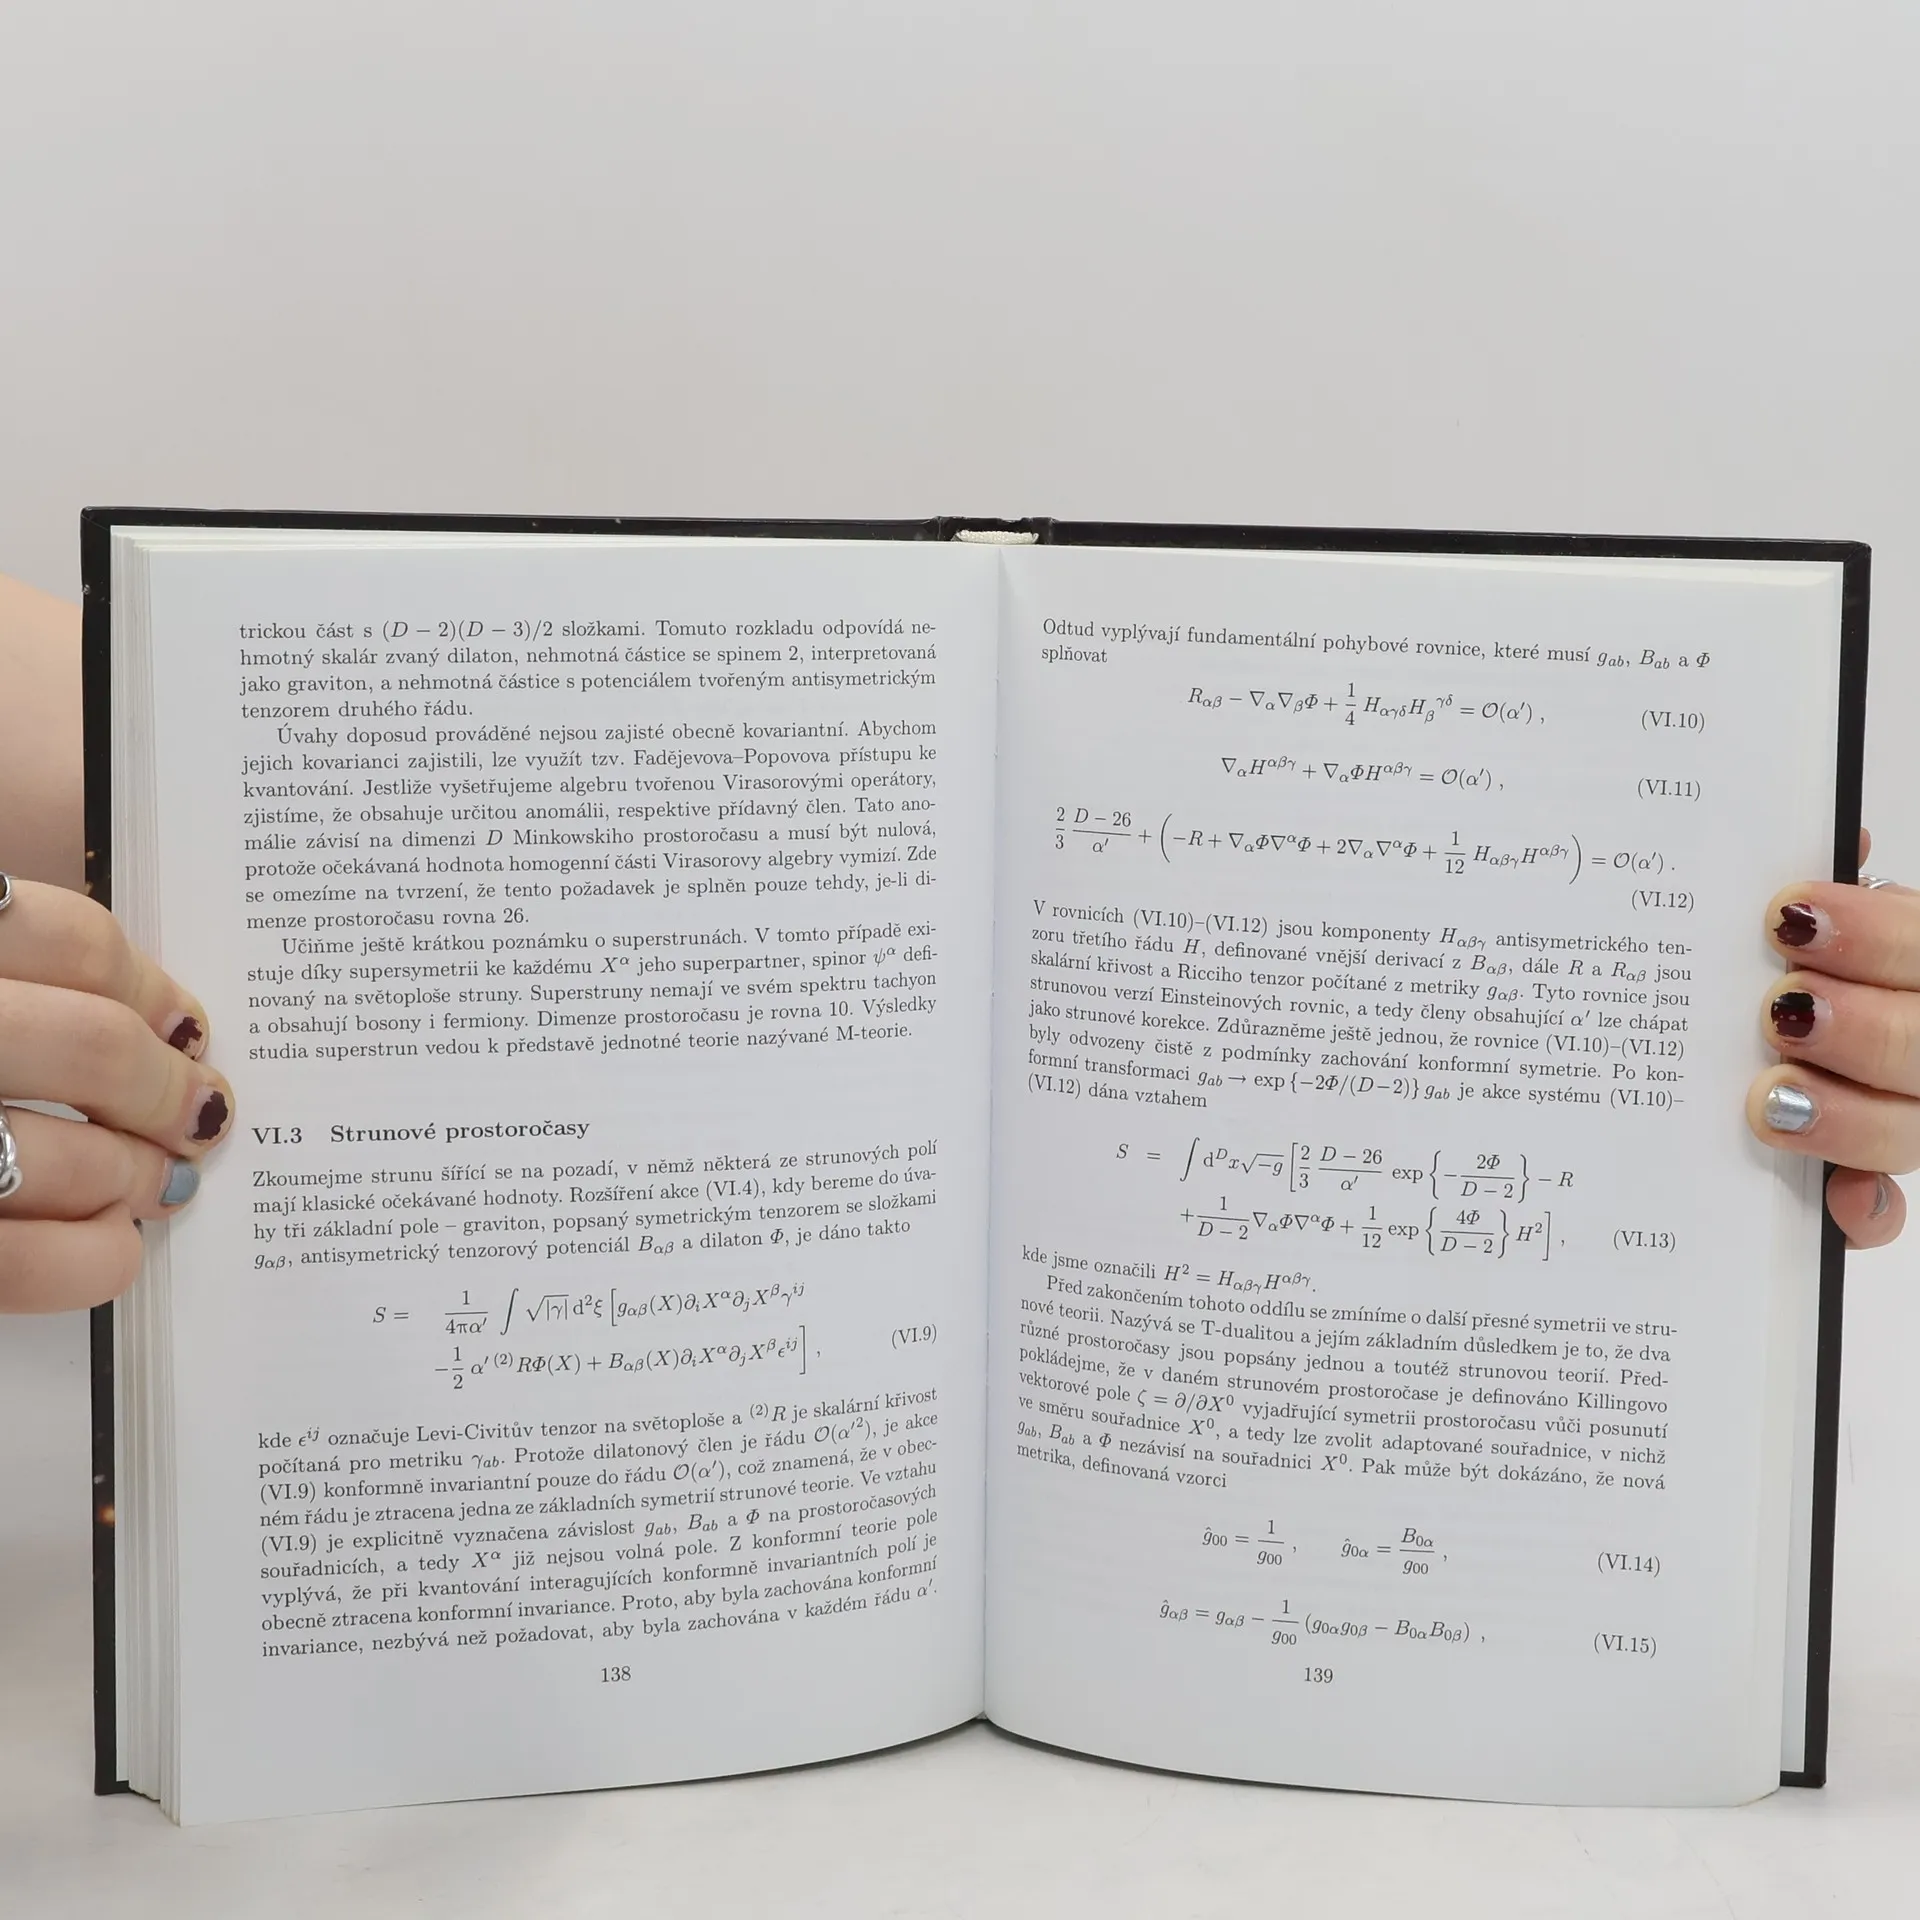 trickou část s (D − 2)(D − 3)/2 složkami. Tomuto rozkladu odpovídá ne-
hmotný skalár zvaný dilaton, nehmotná částice se spinem 2, interpretovaná
jako graviton, a nehmotná částice s potenciálem tvořeným antisymetrickým
tenzorem druhého řádu.
Úvahy doposud prováděné nejsou zajisté obecně kovariantní. Abychom
jejich kovarianci zajistili, lze využít tzv. Faddějevova–Popovova přístupu ke
kvantování. Jestliže vyšetřujeme algebru tvořenou Virasorovými operátory,
zjistíme, že obsahuje určitou anomálii, respektive přídavný člen. Tato ano-
málie závisí na dimenzi D Minkowskiho prostoročasu a musí být nulová,
protože očekávaná hodnota homogenní části Virasorovy algebry vymizí. Zde
se omezíme na tvrzení, že tento požadavek je splněn pouze tehdy, je-li di-
menze prostoročasu rovna 26.
Učiňme ještě krátkou poznámku o superstrunách. V tomto případě exi-
stuje díky supersymetrii ke každému X^α jeho superpartner, spinor ψ^α defi-
novaný na světoploše struny. Superstruny nemají ve svém spektru tachyon
a obsahují bosony i fermiony. Dimenze prostoročasu je rovna 10. Výsledky
studia superstrun vedou k představě jednotné teorie nazývané M-teorie.
VI.3 Strunové prostoročasy
Zkoumejme strunu šířící se na pozadí, v němž některá ze strunových polí
mají klasické očekávané hodnoty. Rozšíření akce (VI.4), kdy bereme do úva-
hy tři základní pole – graviton, popsaný symetrickým tenzorem se složkami
g_{αβ}, antisymetrický tenzorový potenciál B_{αβ} a dilaton Φ, je dáno takto
S = 1/(4πα′) ∫ √|γ| d²ξ [g_{αβ}(X)∂_iX^α∂_jX^βγ^{ij}
−1/2 α′ ^{(2)}RΦ(X) + B_{αβ}(X)∂_iX^α∂_jX^βϵ^{ij}] , (VI.9)
kde ϵ^{ij} označuje Levi-Civitův tenzor na světoploše a ^{(2)}R je skalární křivost
počítaná pro metriku γ_{ab}. Protože dilatonový člen je řádu O(α′²), je akce
(VI.9) konformně invariantní pouze do řádu O(α′), což znamená, že v obec-
ném řádu je ztracena jedna ze základních symetrií strunové teorie. Ve vztahu
(VI.9) je explicitně vyznačena závislost g_{ab}, B_{ab} a Φ na prostoročasových
souřadnicích, a tedy X^α již nejsou volná pole. Z konformní teorie pole
vyplývá, že při kvantování interagujících konformně invariantních polí je
obecně ztracena konformní invariance. Proto, aby byla zachována konformní
invariance, nezbývá než požadovat, aby byla zachována v každém řádu α′.
138
Odtud vyplývají fundamentální pohybové rovnice, které musí g_{ab}, B_{ab} a Φ
splňovat
R_{αβ} − ∇_α∇_βΦ + 1/4 H_{αγδ}H_β^{γδ} = O(α′) , (VI.10)
∇_αH^{αβγ} + ∇_αΦH^{αβγ} = O(α′) , (VI.11)
2/3 (D − 26)/α′ + (−R + ∇_αΦ∇^αΦ + 2∇_α∇^αΦ + 1/12 H_{αβγ}H^{αβγ}) = O(α′) .
(VI.12)
V rovnicích (VI.10)–(VI.12) jsou komponenty H_{αβγ} antisymetrického ten-
zoru třetího řádu H, definované vnější derivací z B_{αβ}, dále R a R_{αβ} jsou
skalární křivost a Ricciho tenzor počítané z metriky g_{αβ}. Tyto rovnice jsou
strunovou verzí Einsteinových rovnic, a tedy členy obsahující α′ lze chápat
jako strunové korekce. Zdůrazněme ještě jednou, že rovnice (VI.10)–(VI.12)
byly odvozeny čistě z podmínky zachování konformní symetrie. Po kon-
formní transformaci g_{ab} → exp {−2Φ/(D−2)} g_{ab} je akce systému (VI.10)–
(VI.12) dána vztahem
S = ∫ d^Dx√−g [2/3 (D − 26)/α′ exp {−2Φ/(D − 2)} − R
+1/(D − 2) ∇_αΦ∇^αΦ + 1/12 exp {4Φ/(D − 2)} H²] , (VI.13)
kde jsme označili H² = H_{αβγ}H^{αβγ}.
Před zakončením tohoto oddílu se zmíníme o další přesné symetrii ve stru-
nové teorii. Nazývá se T-dualitou a jejím základním důsledkem je to, že dva
různé prostoročasy jsou popsány jednou a toutéž strunovou teorií. Před-
pokládejme, že v daném strunovém prostoročase je definováno Killingovo
vektorové pole ζ = ∂/∂X⁰ vyjadřující symetrii prostoročasu vůči posunutí
ve směru souřadnice X⁰, a tedy lze zvolit adaptované souřadnice, v nichž
g_{ab}, B_{ab} a Φ nezávisí na souřadnici X⁰. Pak může být dokázáno, že nová
metrika, definovaná vzorci
ĝ_{00} = 1/g_{00} , ĝ_{0α} = B_{0α}/g_{00} , (VI.14)
ĝ_{αβ} = g_{αβ} − 1/g_{00} (g_{0α}g_{0β} − B_{0α}B_{0β}) , (VI.15)
139